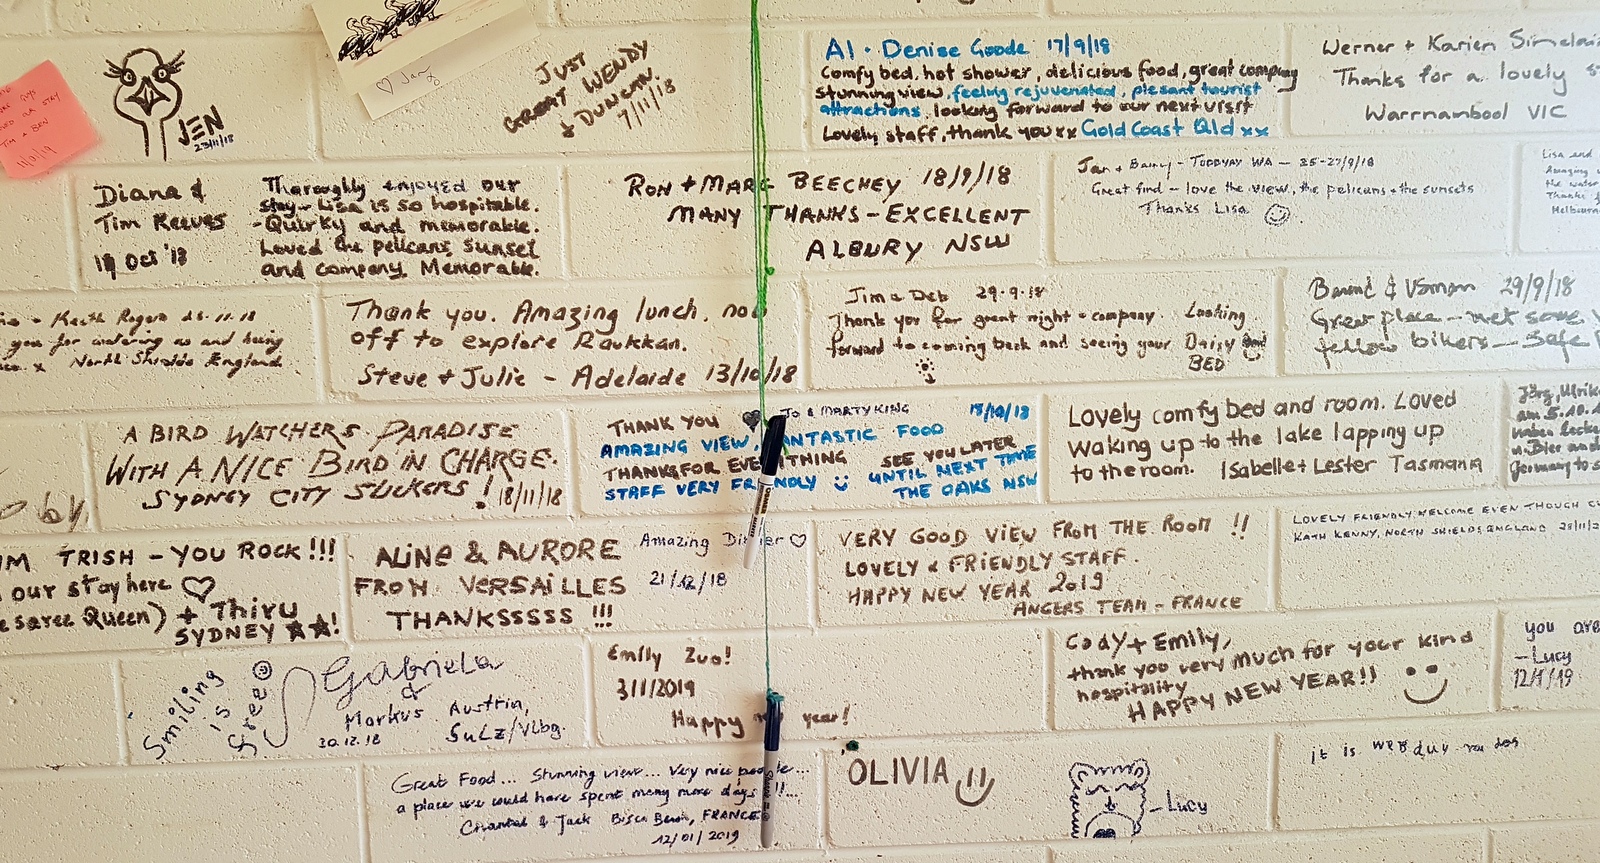 ♡ Jan
11/1/19
JEN
23/11/18
JUST
GREAT WENDY
+ DUNCAN.
7/11/18
Al · Denise Goode 17/9/18
Comfy bed, hot shower, delicious food, great company
stunning view, feeling rejuvenated, plesant tourist
attractions, looking forward to our next visit
Lovely staff, thank you xx Gold Coast Qld xx
Werner + Karien
Thanks for a lovely
Warrnambool VIC
Diana &
Tim Reeves
19 Oct '18
Thoroughly enjoyed our
stay - Lisa is so hospitable.
- Quirky and memorable.
Loved the pelicans, sunset
and company. Memorable.
RON + MARG BEECHEY 18/9/18
MANY THANKS - EXCELLENT
ALBURY NSW
Jan + Barry - TOODYAY WA - 25-27/9/18
Great find - love the view, the pelicans + the sunsets
Thanks Lisa ☺
Lisa and
Amazing
the water
Thanks
Melbourne
Keith Rogers 26.11.18
you for watering us and being
x North Shields England
Thank you. Amazing lunch, now
off to explore Raukkan.
Steve + Julie - Adelaide 13/10/18
Jim & Deb 29.9.18
Thank you for great night + company. Looking
forward to coming back and seeing your Daisy
BED
29/9/18
Great place - met some
fellow bikers - Safe
A BIRD WATCHERS PARADISE
WITH A NICE BIRD IN CHARGE.
SYDNEY CITY SLICKERS! 18/11/18
THANK YOU ♥ JO & MARTY KING 18/10/18
AMAZING VIEW, FANTASTIC FOOD
THANKS FOR EVERYTHING SEE YOU LATER
STAFF VERY FRIENDLY ☺ UNTIL NEXT TIME
THE OAKS NSW
Lovely comfy bed and room. Loved
waking up to the lake lapping up
to the room. Isabelle + Lester Tasmania
Jörg, Ulrike
am 5.10.1
Germany
TRISH - YOU ROCK!!!
our stay here ♡
saree Queen) + Thiru
SYDNEY ★★!
ALINE & AURORE
FROM VERSAILLES
THANKSSSSS !!!
Amazing Dinner ♡
21/12/18
VERY GOOD VIEW FROM THE ROOM !!
LOVELY & FRIENDLY STAFF.
HAPPY NEW YEAR 2019
ANGERS TEAM - FRANCE
LOVELY FRIENDLY WELCOME EVEN THOUGH
KATH KENNY, NORTH SHIELDS, ENGLAND
Smiling
is
free ☺
Gabriela
&
Markus Austria,
30.12.18 Sulz/Vlbg.
Emily Zuo!
3/1/2019
Happy new year!
Cody + Emily,
thank you very much for your kind
hospitality
HAPPY NEW YEAR!!
you are
- Lucy
12/1/19
Great Food... Stunning view... Very nice people...
a place we could have spent many more days !!...
Chantal & Jack Bisca Beach, FRANCE
12/01/2019
OLIVIA
- Lucy
it is